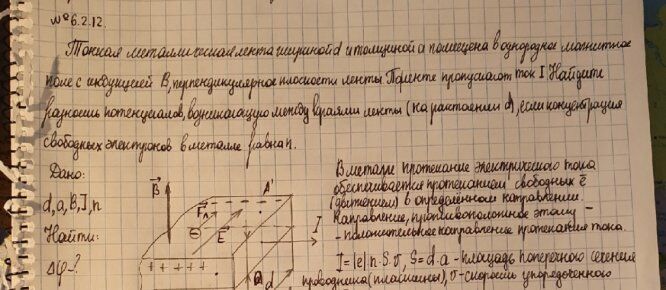 №6.2.12.
Тонкая металлическая лента шириной d и толщиной a помещена в однородное магнитное
поле с индукцией B, перпендикулярное плоскости ленты. По ленте пропускают ток I. Найдите
разность потенциалов, возникающую между краями ленты (на расстоянии d), если концентрация
свободных электронов в металле равна n.
Дано:
d, a, B, I, n
Найти:
Δφ-?
B
Fл
E
A'
I
++++
a
d
В металле протекание электрического тока
обеспечивается протеканием свободных e
(движением) в определённом направлении.
Направление, противоположное этому -
- положительное направление протекания тока.
I=|e|·n·S·v, S=d·a - площадь поперечного сечения
проводника (пластины), v - скорость упорядоченного